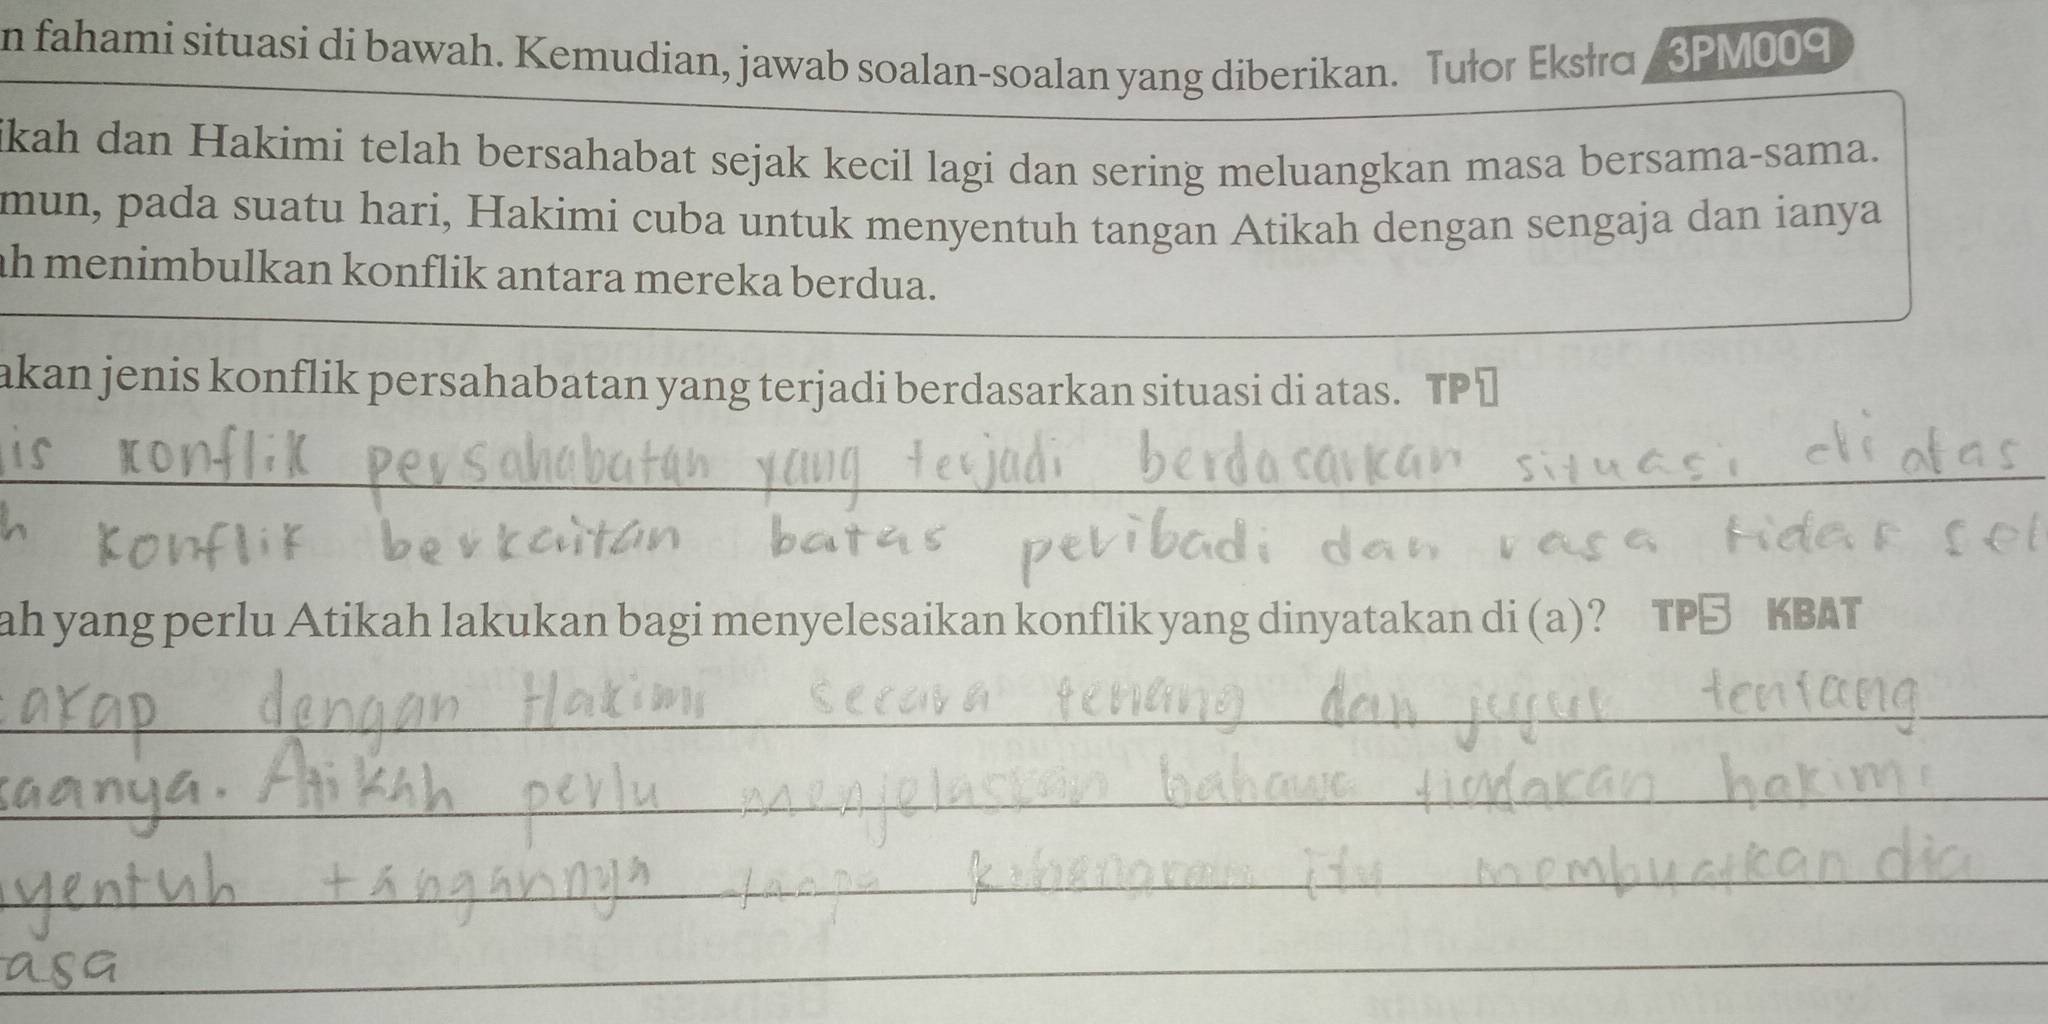 n fahami situasi di bawah. Kemudian, jawab soalan-soalan yang diberikan. Tutor Ekstra 3PM009
ikah dan Hakimi telah bersahabat sejak kecil lagi dan sering meluangkan masa bersama-sama.
mun, pada suatu hari, Hakimi cuba untuk menyentuh tangan Atikah dengan sengaja dan ianya
ah menimbulkan konflik antara mereka berdua.
akan jenis konflik persahabatan yang terjadi berdasarkan situasi di atas. TP1
is konflik persahabatan yang terjadi berdasarkan situasi di atas
h konflik berkaitan batas peribadi dan rasa tidak sel
ah yang perlu Atikah lakukan bagi menyelesaikan konflik yang dinyatakan di (a)? TP5 KBAT
cakap dengan Hakimi secara tenang dan jujur tentang
saanya. Atikah perlu menjelaskan bahawa tindakan hakimi
yentuh tangannya tanpa kebenaran itu membuatkan dia
asa